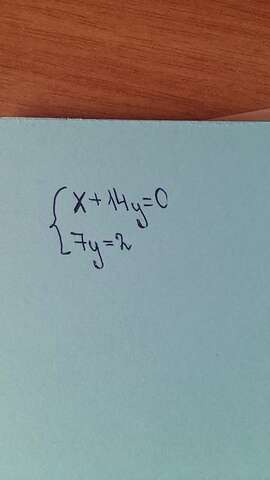 x+14y=0
7y=2